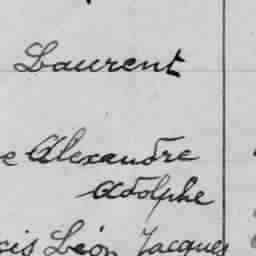 Laurent
e Alexandre
Adolphe
cis Léon Jacques